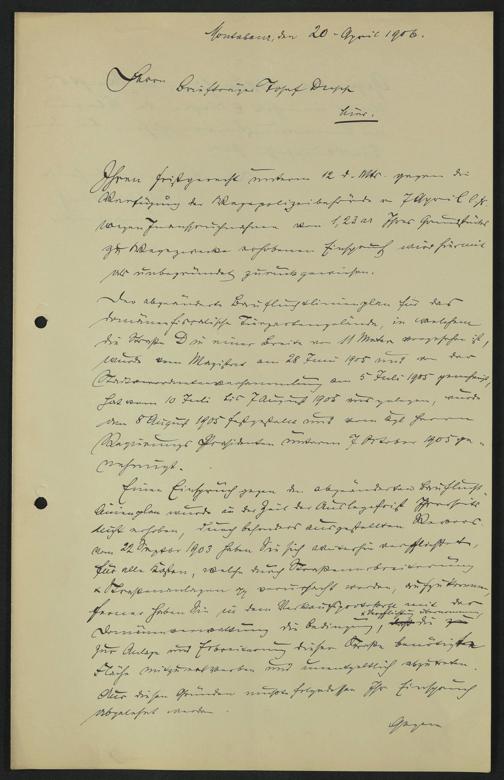 Montabaur, den 20. April 1906.
Herrn
Briefträger Josef
hier.
Ihren fristgerecht unterm 12. d. Mts. gegen die
Verfügung der Wegepolizeibehörde v. 7 April d. J.
wegen Inanspruchnahme von 1,23 ar Ihres Grundstückes
zu Wegezwecken erhobenen Einspruch wird hiermit
als unbegründet zurückgewiesen.
Der abgeänderte Baufluchtlinienplan für das
domänenfiskalische Tiergartengelände, in welchem
die Straße D in einer Breite von 11 Meter vorgesehen ist,
wurde vom Magistrat am 28 Juni 1905 und von der
Stadtverordnetenversammlung am 5 Juli 1905 genehmigt,
hat vom 10 Juli bis 7 August 1905 aus gelegen, wurde
am 8 August 1905 festgestellt und vom kgl Herrn
Regierungs Präsidenten unterm 7 October 1905 ge-
nehmigt.
Einen Einspruch gegen den abgeänderten Bauflucht-
linienplan wurde in der Zeit der Auslegefrist Ihrerseits
nicht erhoben, durch besonders ausgestellten Revers
vom 22 1903 haben Sie sich verpflichtet,
für alle Kosten, welche durch Straßenverbreiterung
& Straßenanlagen pp verursacht werden, aufzukommen,
ferner haben Sie in dem Verkaufsprotokoll mit der
Domänenverwaltung die Bedingung, die
zur Anlage und Verbreiterung dieser Straße benötigte
Fläche mitzuerwerben und unentgeltlich abzutreten.
Aus diesen Gründen mußte Ihr Einspruch
abgelehnt werden.
Gegen